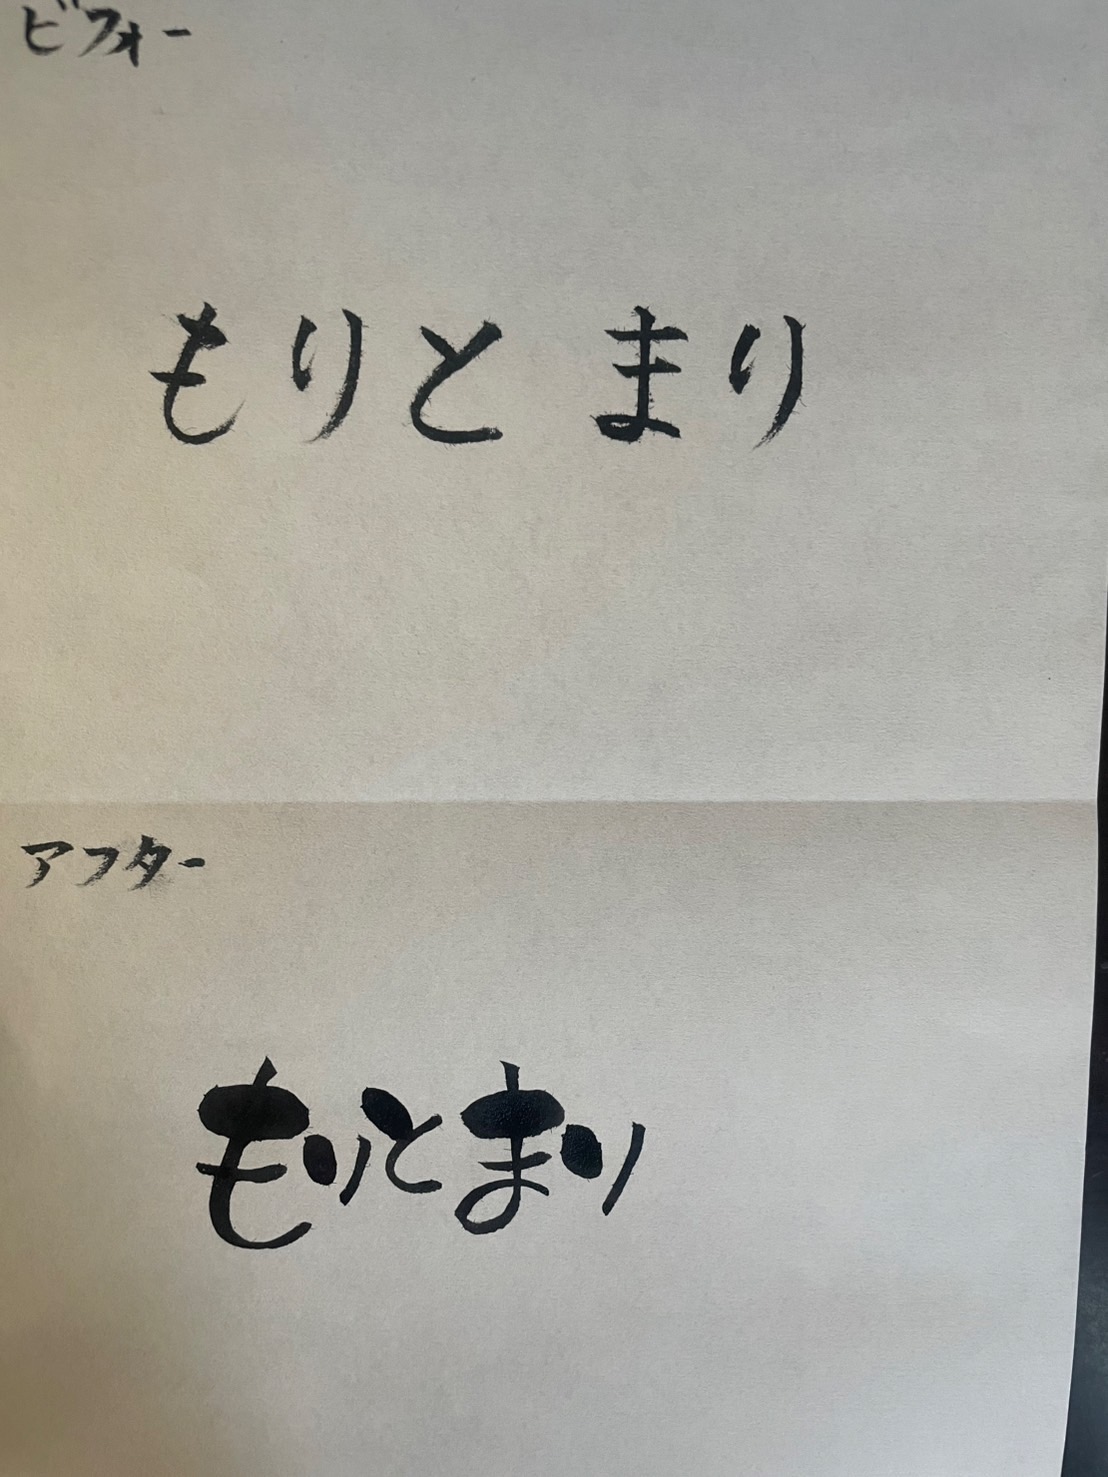 ビフォー
もりと まり
アフター
もりとまり